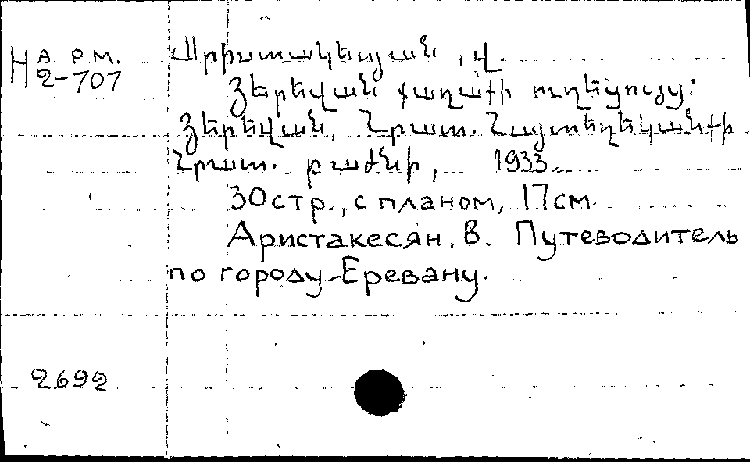 Н Арм.
2-707
Արիստակեսյան, Վ.
Յերեվան քաղաքի ուղեցույց:
Յերեվան, Հրատ. Հայտեղեկանքի
Հրատ. բաժնի, 1933.
30 стр., с планом, 17 см.
Аристакесян, В. Путеводитель
по городу Еревану.
2692